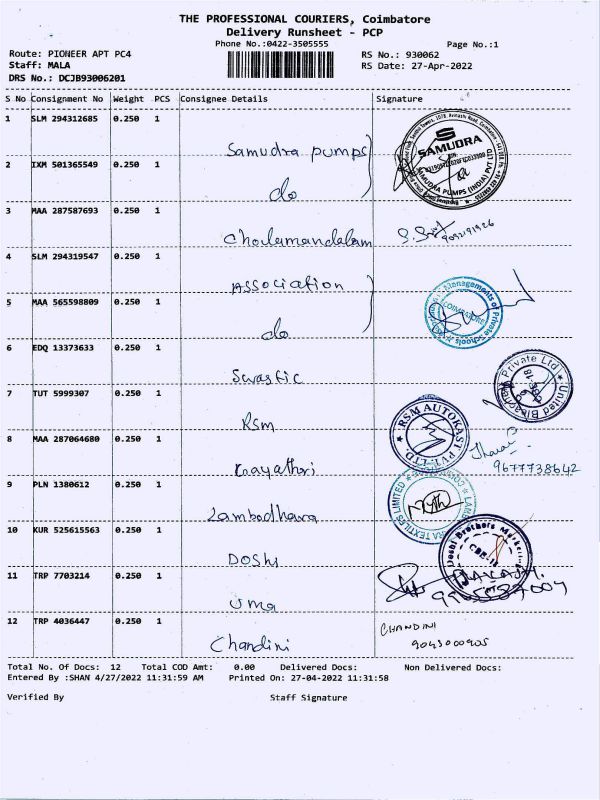 THE PROFESSIONAL COURIERS, Coimbatore
Delivery Runsheet - PCP
Phone No.:0422-3505555
Page No.:1
Route: PIONEER APT PC4
RS No.: 930062
Staff: MALA
RS Date: 27-Apr-2022
DRS No.: DCJB93006201
S No Consignment No Weight PCS Consignee Details Signature
1 SLM 294312685 0.250 1
Samudra pumps
SAMUDRA
SAMUDRA PUMPS (INDIA) PVT LTD
2 IXM 501365549 0.250 1
do
3 MAA 287587693 0.250 1
Cholamandalam
9092191926
4 SLM 294319547 0.250 1
Association
Managements of Private Schools
COIMBATORE
5 MAA 565598809 0.250 1
do
6 EDQ 13373633 0.250 1
Swastic
Private Ltd
CBE-18
7 TUT 5999307 0.250 1
RSM
RSM AUTOKAST PVT. LTD
8 MAA 287064680 0.250 1
Gayathri
9677738642
9 PLN 1380612 0.250 1
Lambodhara
TEXTILES LIMITED
10 KUR 525615563 0.250 1
DOSHI
Doshi Brothers
11 TRP 7703214 0.250 1
Uma
12 TRP 4036447 0.250 1
Chandini
CHANDINI
9043000905
Total No. Of Docs: 12 Total COD Amt: 0.00 Delivered Docs: Non Delivered Docs:
Entered By :SHAN 4/27/2022 11:31:59 AM Printed On: 27-04-2022 11:31:58
Verified By Staff Signature